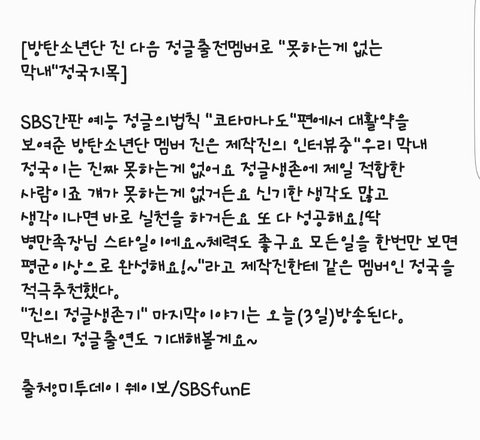 [방탄소년단 진 다음 정글출전멤버로 "못하는게 없는
막내"정국지목]
SBS간판 예능 정글의법칙 "코타마나도"편에서 대활약을
보여준 방탄소년단 멤버 진은 제작진의 인터뷰중"우리 막내
정국이는 진짜 못하는게 없어요 정글생존에 제일 적합한
사람이죠 걔가 못하는게 없거든요 신기한 생각도 많고
생각이나면 바로 실천을 하거든요 또 다 성공해요!딱
병만족장님 스타일이에요~체력도 좋구요 모든일을 한번만 보면
평균이상으로 완성해요!~"라고 제작진한테 같은 멤버인 정국을
적극추천했다.
"진의 정글생존기" 마지막이야기는 오늘(3일)방송된다.
막내의 정글출연도 기대해볼게요~
출처:미투데이 웨이보/SBSfunE